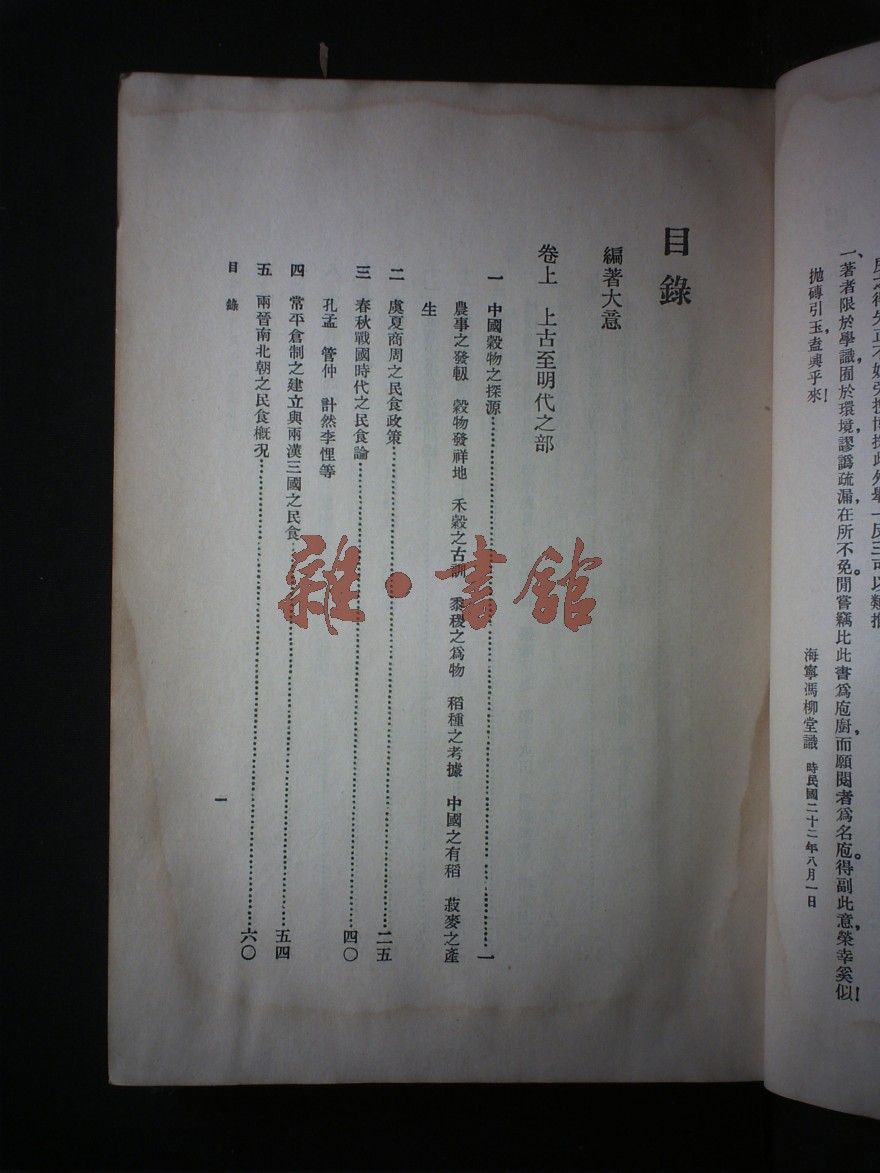 一、著者限於學識囿於環境，謬譌疏漏，在所不免。閒嘗竊比此書爲庖廚，而願閱者爲名庖。得副此意，榮幸奚似！
拋磚引玉，盍興乎來！
海寧馮柳堂識　時民國二十二年八月一日
目錄
編著大意
卷上　上古至明代之部
一　中國穀物之探源……………一
農事之發軔　穀物發祥地　禾穀之古訓　黍稷之爲物　稻種之考據　中國之有稻　菽麥之產
生
二　虞夏商周之民食政策……………二五
三　春秋戰國時代之民食論……………四〇
孔孟　管仲　計然李悝等
四　常平倉制之建立與兩漢三國之民食……………五四
五　兩晉南北朝之民食概況……………六〇
目錄
一
雜·書館